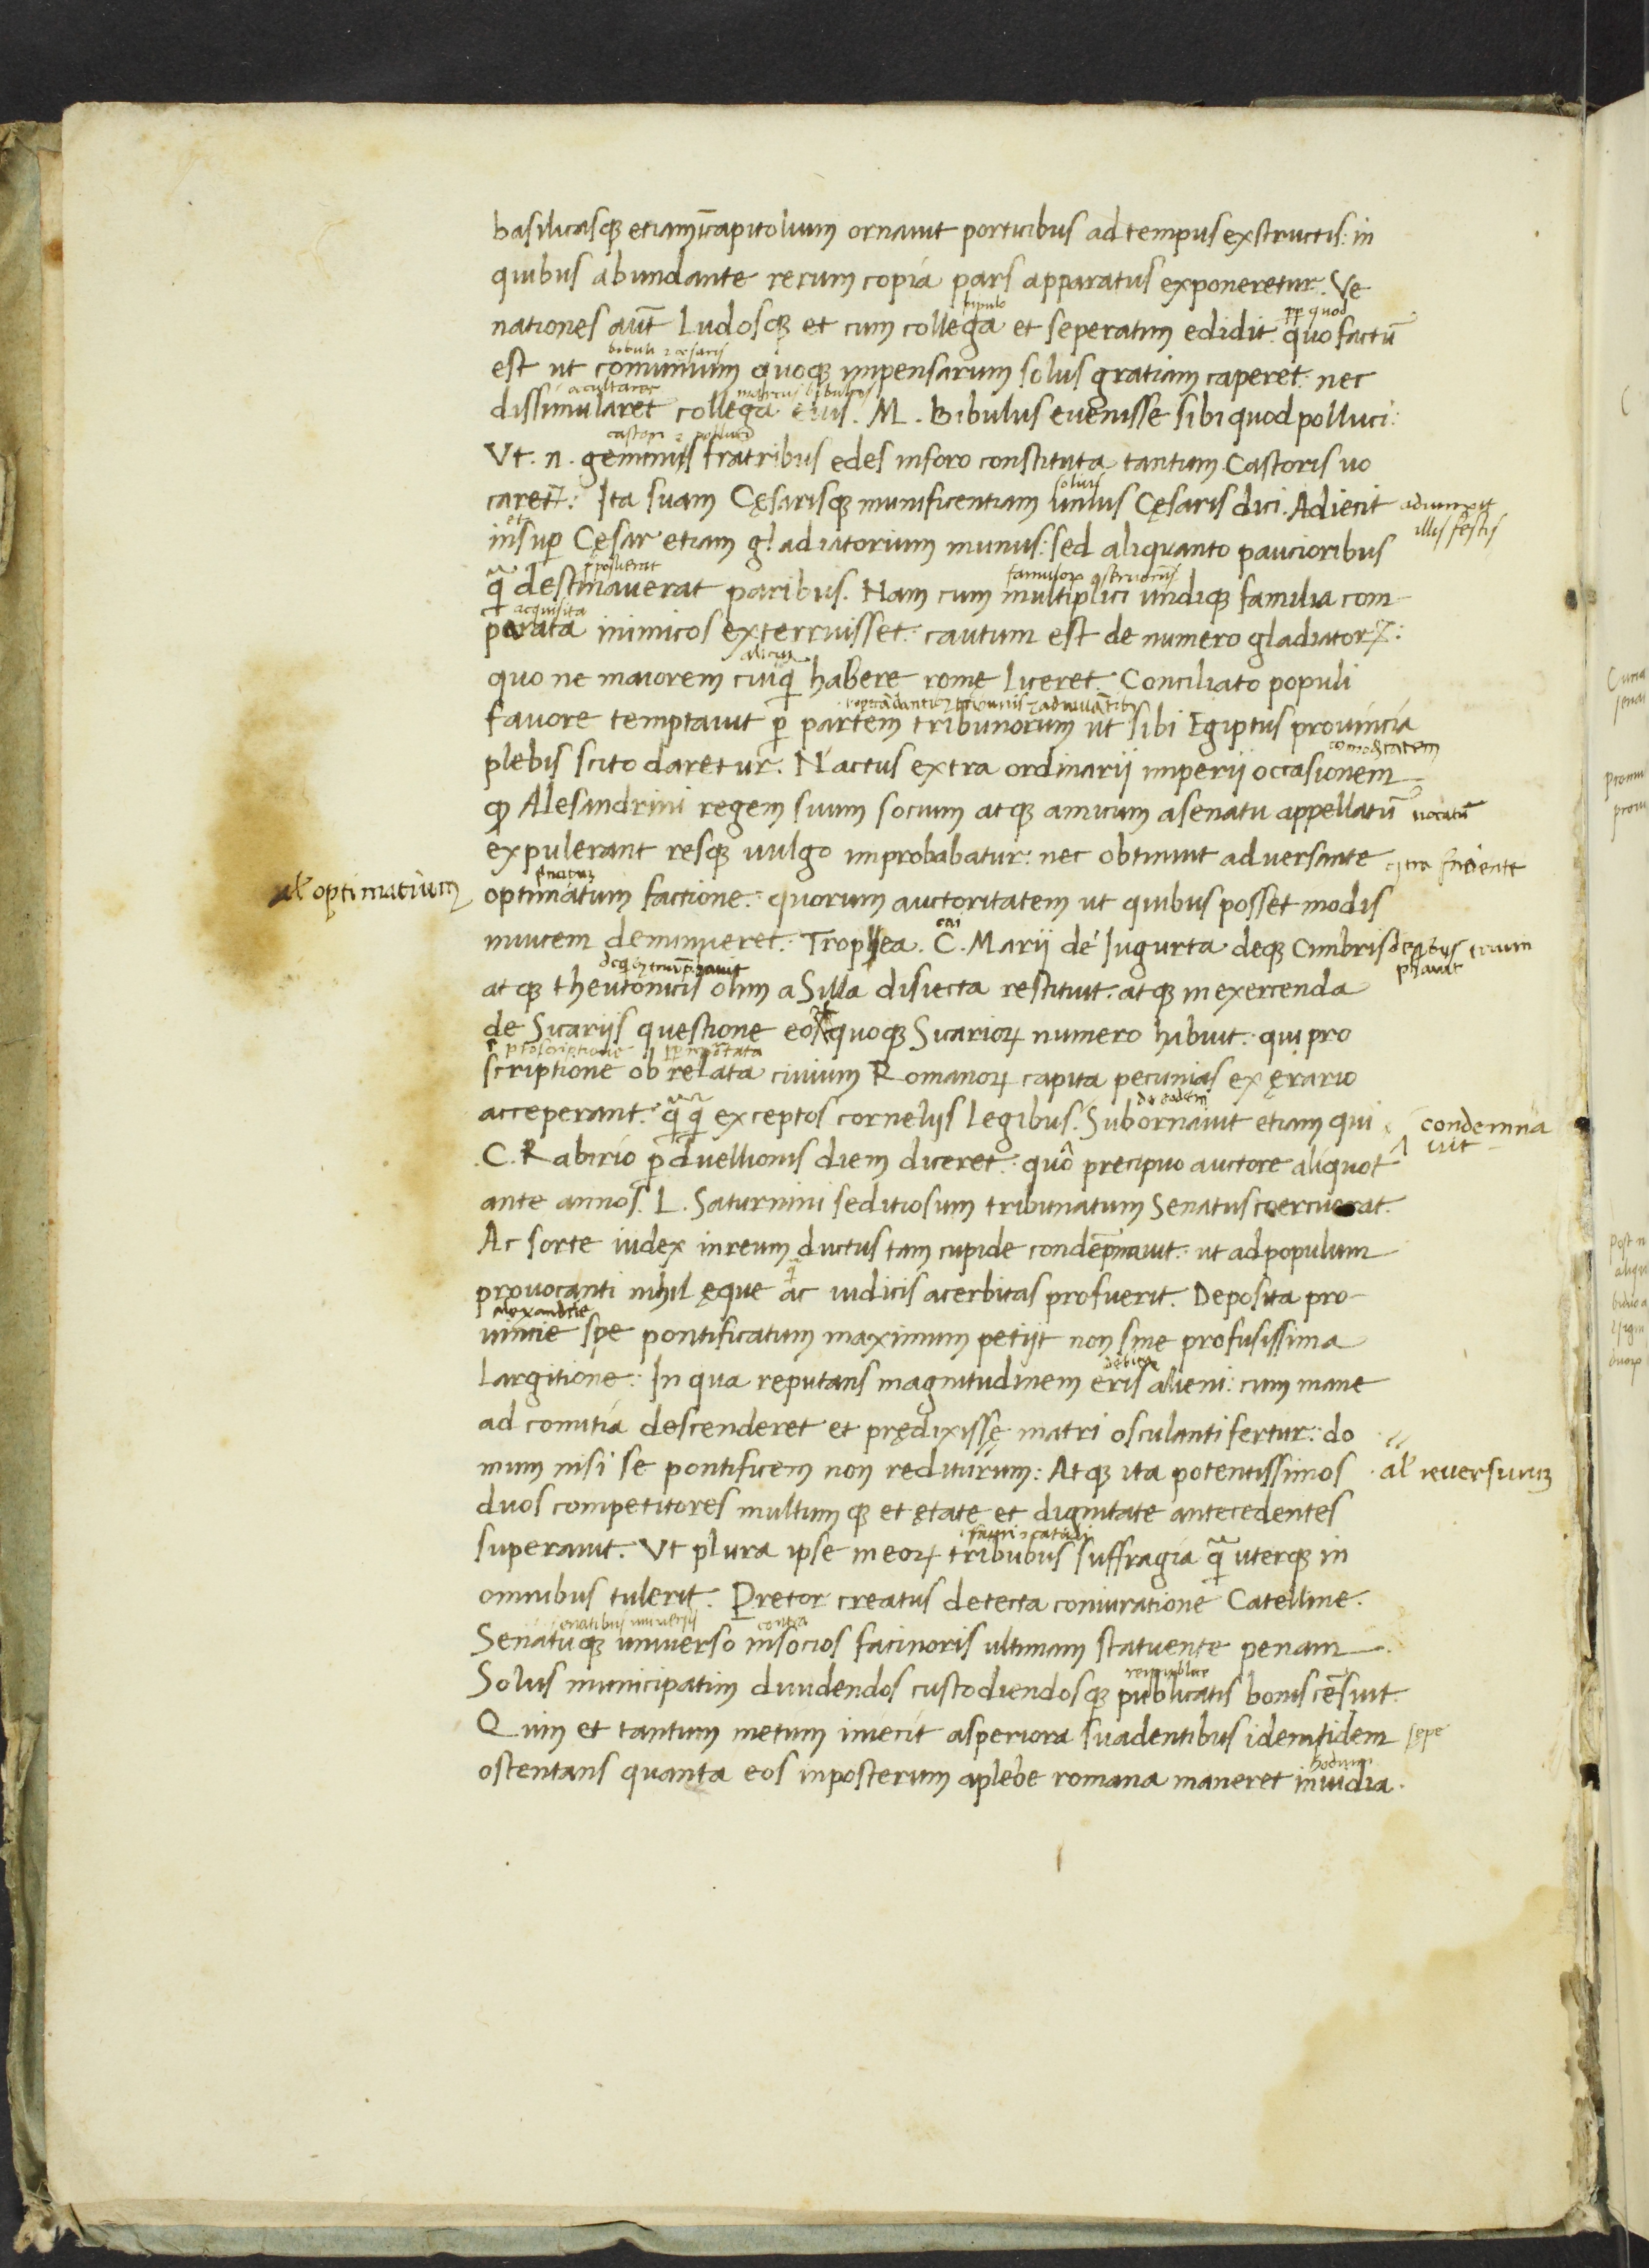 basilicasq; etiam capitolium ornauit porticibus ad tempus exstructis: in
quibus abundante rerum copia pars apparatus exponeretur. Ve
bipulo pp quod
nationes aut̄ Ludosq; et cum collega et seperatim edidit. quo factū
bibuli ⁊ cesaris
est ut comunium quoq; impensarum solus gratiam caperet. nec
marcus bibulus
dissimularet collega eius. M. Bibulus euenisse sibi quod polluci:
castori ⁊ polluci
Vt. n. geminis fratribus edes in foro constituta tantum Castoris uo
solius
caretꝶ: Ita suam Cęsarisq; munificentiam unius Cęsaris dici. Adiecit adiunxit
illis festis
et
insuꝑ Cęsar etiam gladiatorium munus: sed aliquanto paucioribus
p̄posuerat
q̄ destinauerat paribus. Nam cum multiplici undiq; familia com
acquisita
parata inimicos exterruisset: cautum est de numero gladiatorꝶ:
quo ne maiorem cuiq̄ habere romę liceret. Conciliato populi
fauore temptauit ꝑ partem tribunorum ut sibi Egiptus prouincia
comoditatem
plebis scito daretur. Nactus extra ordinarij imperij occasionem
ꝙ Alesandrini regem suum socium atq; amicum a senatu appellatū uocatū
expulerant resq; uulgo improbabatur: nec obtinuit aduersante
al optimatium optimatum factione: quorum auctoritatem ut quibus posset modis
cai
inuicem deminueret. Trophea. C. Marij de Iugurta deq; Cimbris
atq; theutonicis olim a Silla disiecta restituit. atq; in exercenda
de Sicarijs questione eos quoq; Sicarioꝝ numero habuit: qui pro
proscriptione
scriptione ob relata ciuium Romanoꝝ capita pecunias ex ęrario
acceperant. q̄q̄ exceptos cornelijs legibus. Subornauit etiam qui condemna
uit
.C. Rabirio ꝑduellionis diem diceret: quo precipuo auctore aliquot
ante annos. L. Saturnini seditiosum tribunatum Senatus coercuerat.
Ac sorte iudex in reum ductus tam cupide condēpnauit: ut ad populum
q̄
prouocanti nihil ęque ac iudicis acerbitas profuerit. Deposita pro-
alexandrie
uincie spe pontificatum maximum petijt non sine profusissima
debiti
Largitione: In qua reputans magnitudinem eris alieni: cum mane
ad comitia descenderet et prędixisse matri osculanti fertur: do
mum nisi se pontificem non rediturum: Atq; ita potentissimos al reuersurum
duos competitores multum q; et ętate et dignitate antecedentes
superauit. Vt plura ipse in eoꝝ tribubus suffragia q̄ uterq; in
omnibus tulerit. Pretor creatus detecta coniuratione Catelline.
contra
Senatuq; uniuerso in socios facinoris ultimam statuente penam
Solus municipatim diuidendos custodiendosq; publicatis bonis cēsuit.
Quin et tantum metum iniecit asperiora suadentibus identidem sepe
hodium
ostentans quanta eos in posterum a plebe romana maneret inuidia.